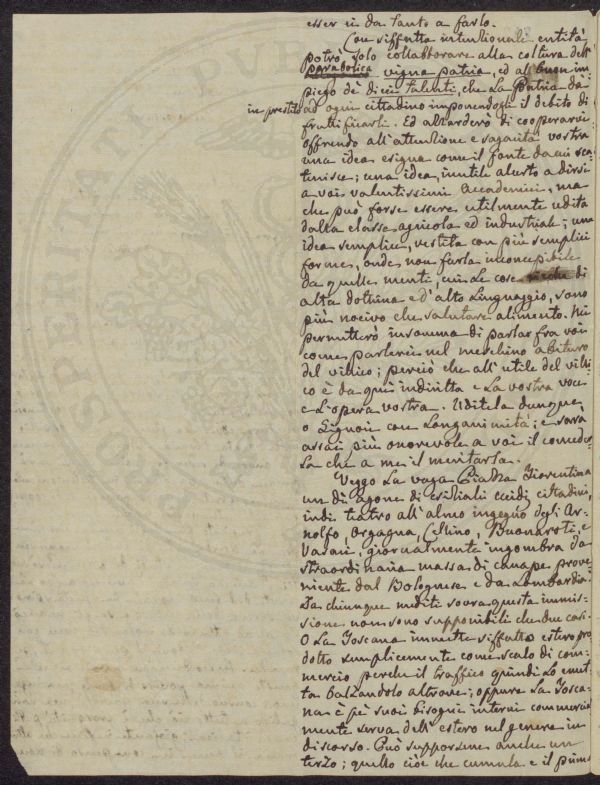 esser in da tanto a farlo.
Con siffatta intenzionali entità
potrò solo collaborare alla coltura dell'
parabolica vigna patria, ed al buon im-
piego de' dieci talenti, che la Patria dà
in prestito ad ogni cittadino imponendogli il debito di
fruttificarli. Ed attenderò di cooperarvi
offrendo all'attenzione e sagacità vostra
una idea esigua come il fonte da cui sca-
turisce; una idea, inutile al certo a dirsi
a voi valentissimi Accademici, ma
che può forse essere utilmente udita
dalla classe agricola ed industriale; una
idea semplice, vestita con più semplici
forme, onde non farla inconcepibile
da quelle menti, cui le cose di
alta dottrina e d'alto linguaggio, sono
più nocivo che salutare alimento. Mi
permetterò insomma di parlar fra voi
come parlerei nel meschino abituro
del villico; perciò che all'utile del villi-
co è da qui indiritta e la vostra voce
e l'opera vostra. Uditela dunque,
o Signori con longanimità; e sarà
assai più onorevole a voi il conceder-
la che a me il meritarla.
Veggo la vaga Piazza Fiorentina
un dì agone di esiziali eccidj cittadini,
indi teatro all'almo ingegno degli Ar-
nolfo, Orgagna, Cellino, Buonaroti, e
Vasari, giornalmente ingombra da
straordinaria massa di canape prove-
niente dal Bolognese e da Lombardia.
Da chiunque mediti sovra questa immis-
sione non sono supponibili che due casi.
O la Toscana immette siffatto estero pro-
dotto semplicemente come scalo di com-
mercio perché il traffico quindi lo emet-
ta balzandolo altrove; oppure la Tosca-
na è pe' suoi bisogni interni commercial-
mente serva dell'estero nel genere in
discorso. Può supporsene anche un
terzo; quello cioè che cumula e il primo